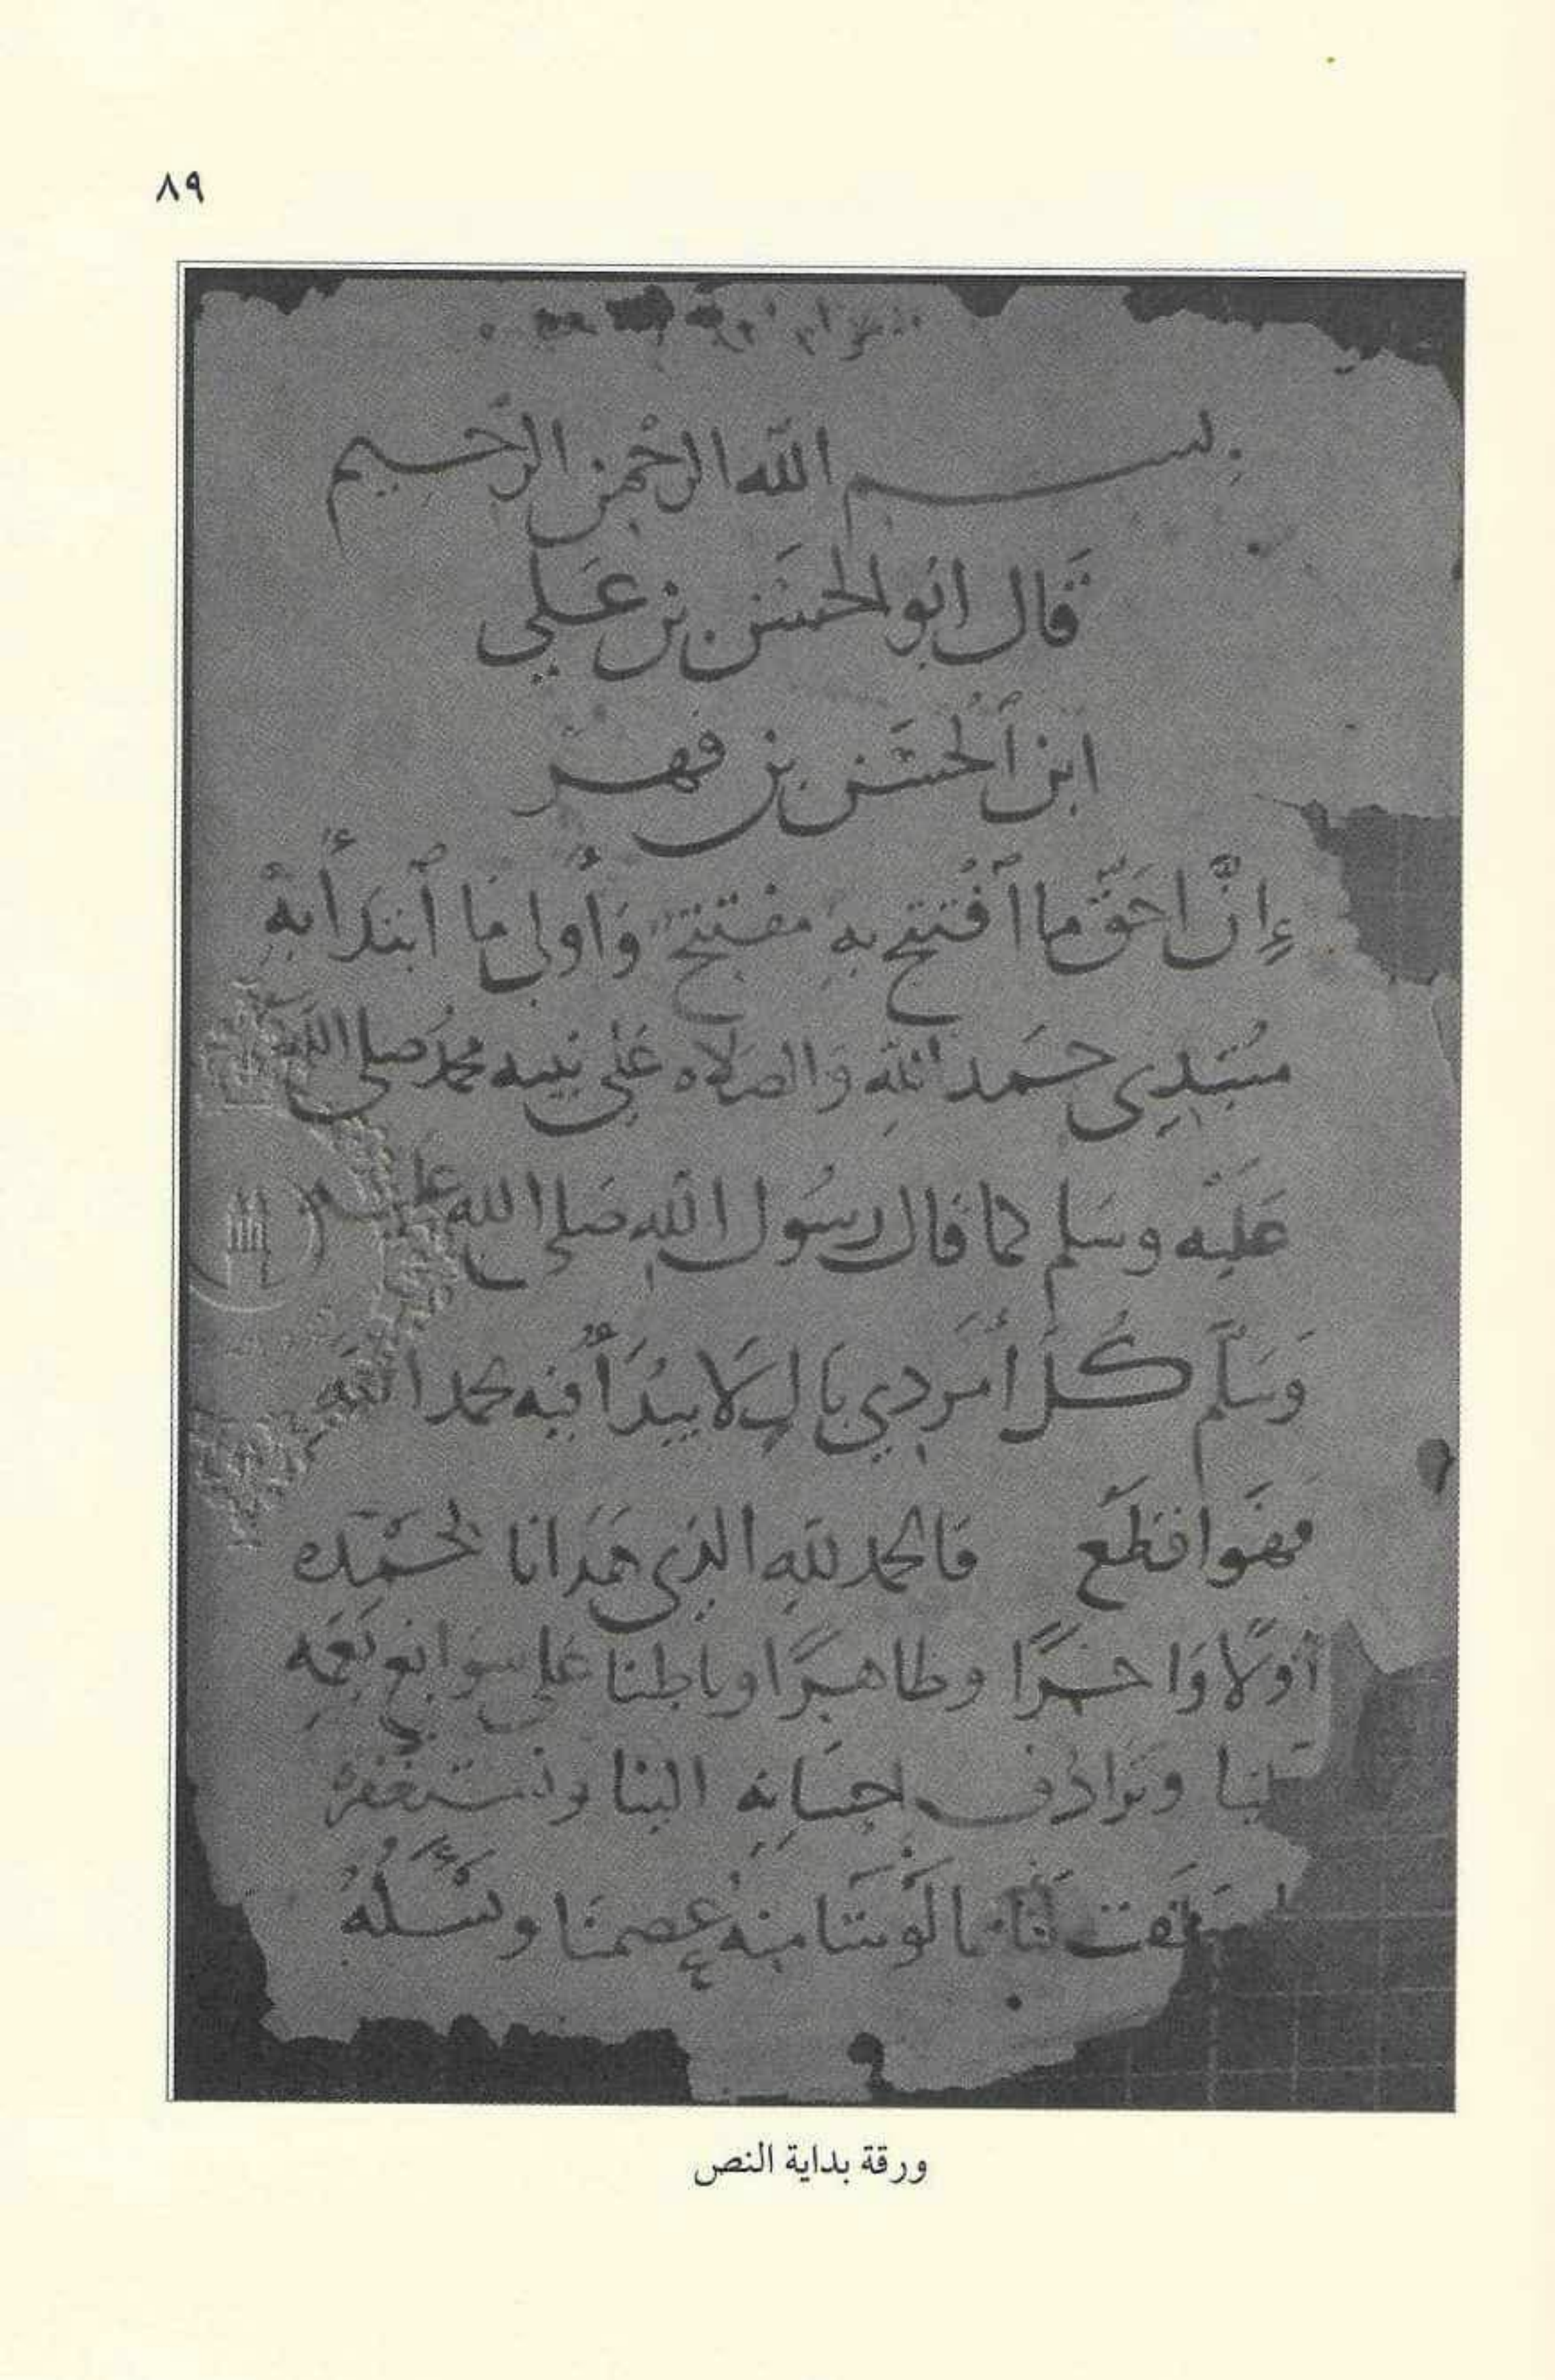 ٨٩
بسم الله الرحمن الرحيم
قال ابو الحسن بن علي
ابن الحسن بن فهر
إنّ احقّ ما ٱفتتح به مفتتح وأولى ما ٱبتدأ به
مبتدي حمد الله والصلاه على نبيه محمد صلى الله
عليه وسلم كما قال رسول الله صلى الله عليه
وسلّم كلّ أمر ذي بال لا يبدأ فيه بحمد الله
فهو اقطع فالحمد لله الذي هدانا لحمده
أولا واخرا وظاهرا وباطنا على سوابغ نعمه
وترادف احسانه الينا ونستغفره
لنا ما لوينا منه عصمنا ونسئله
ورقة بداية النص